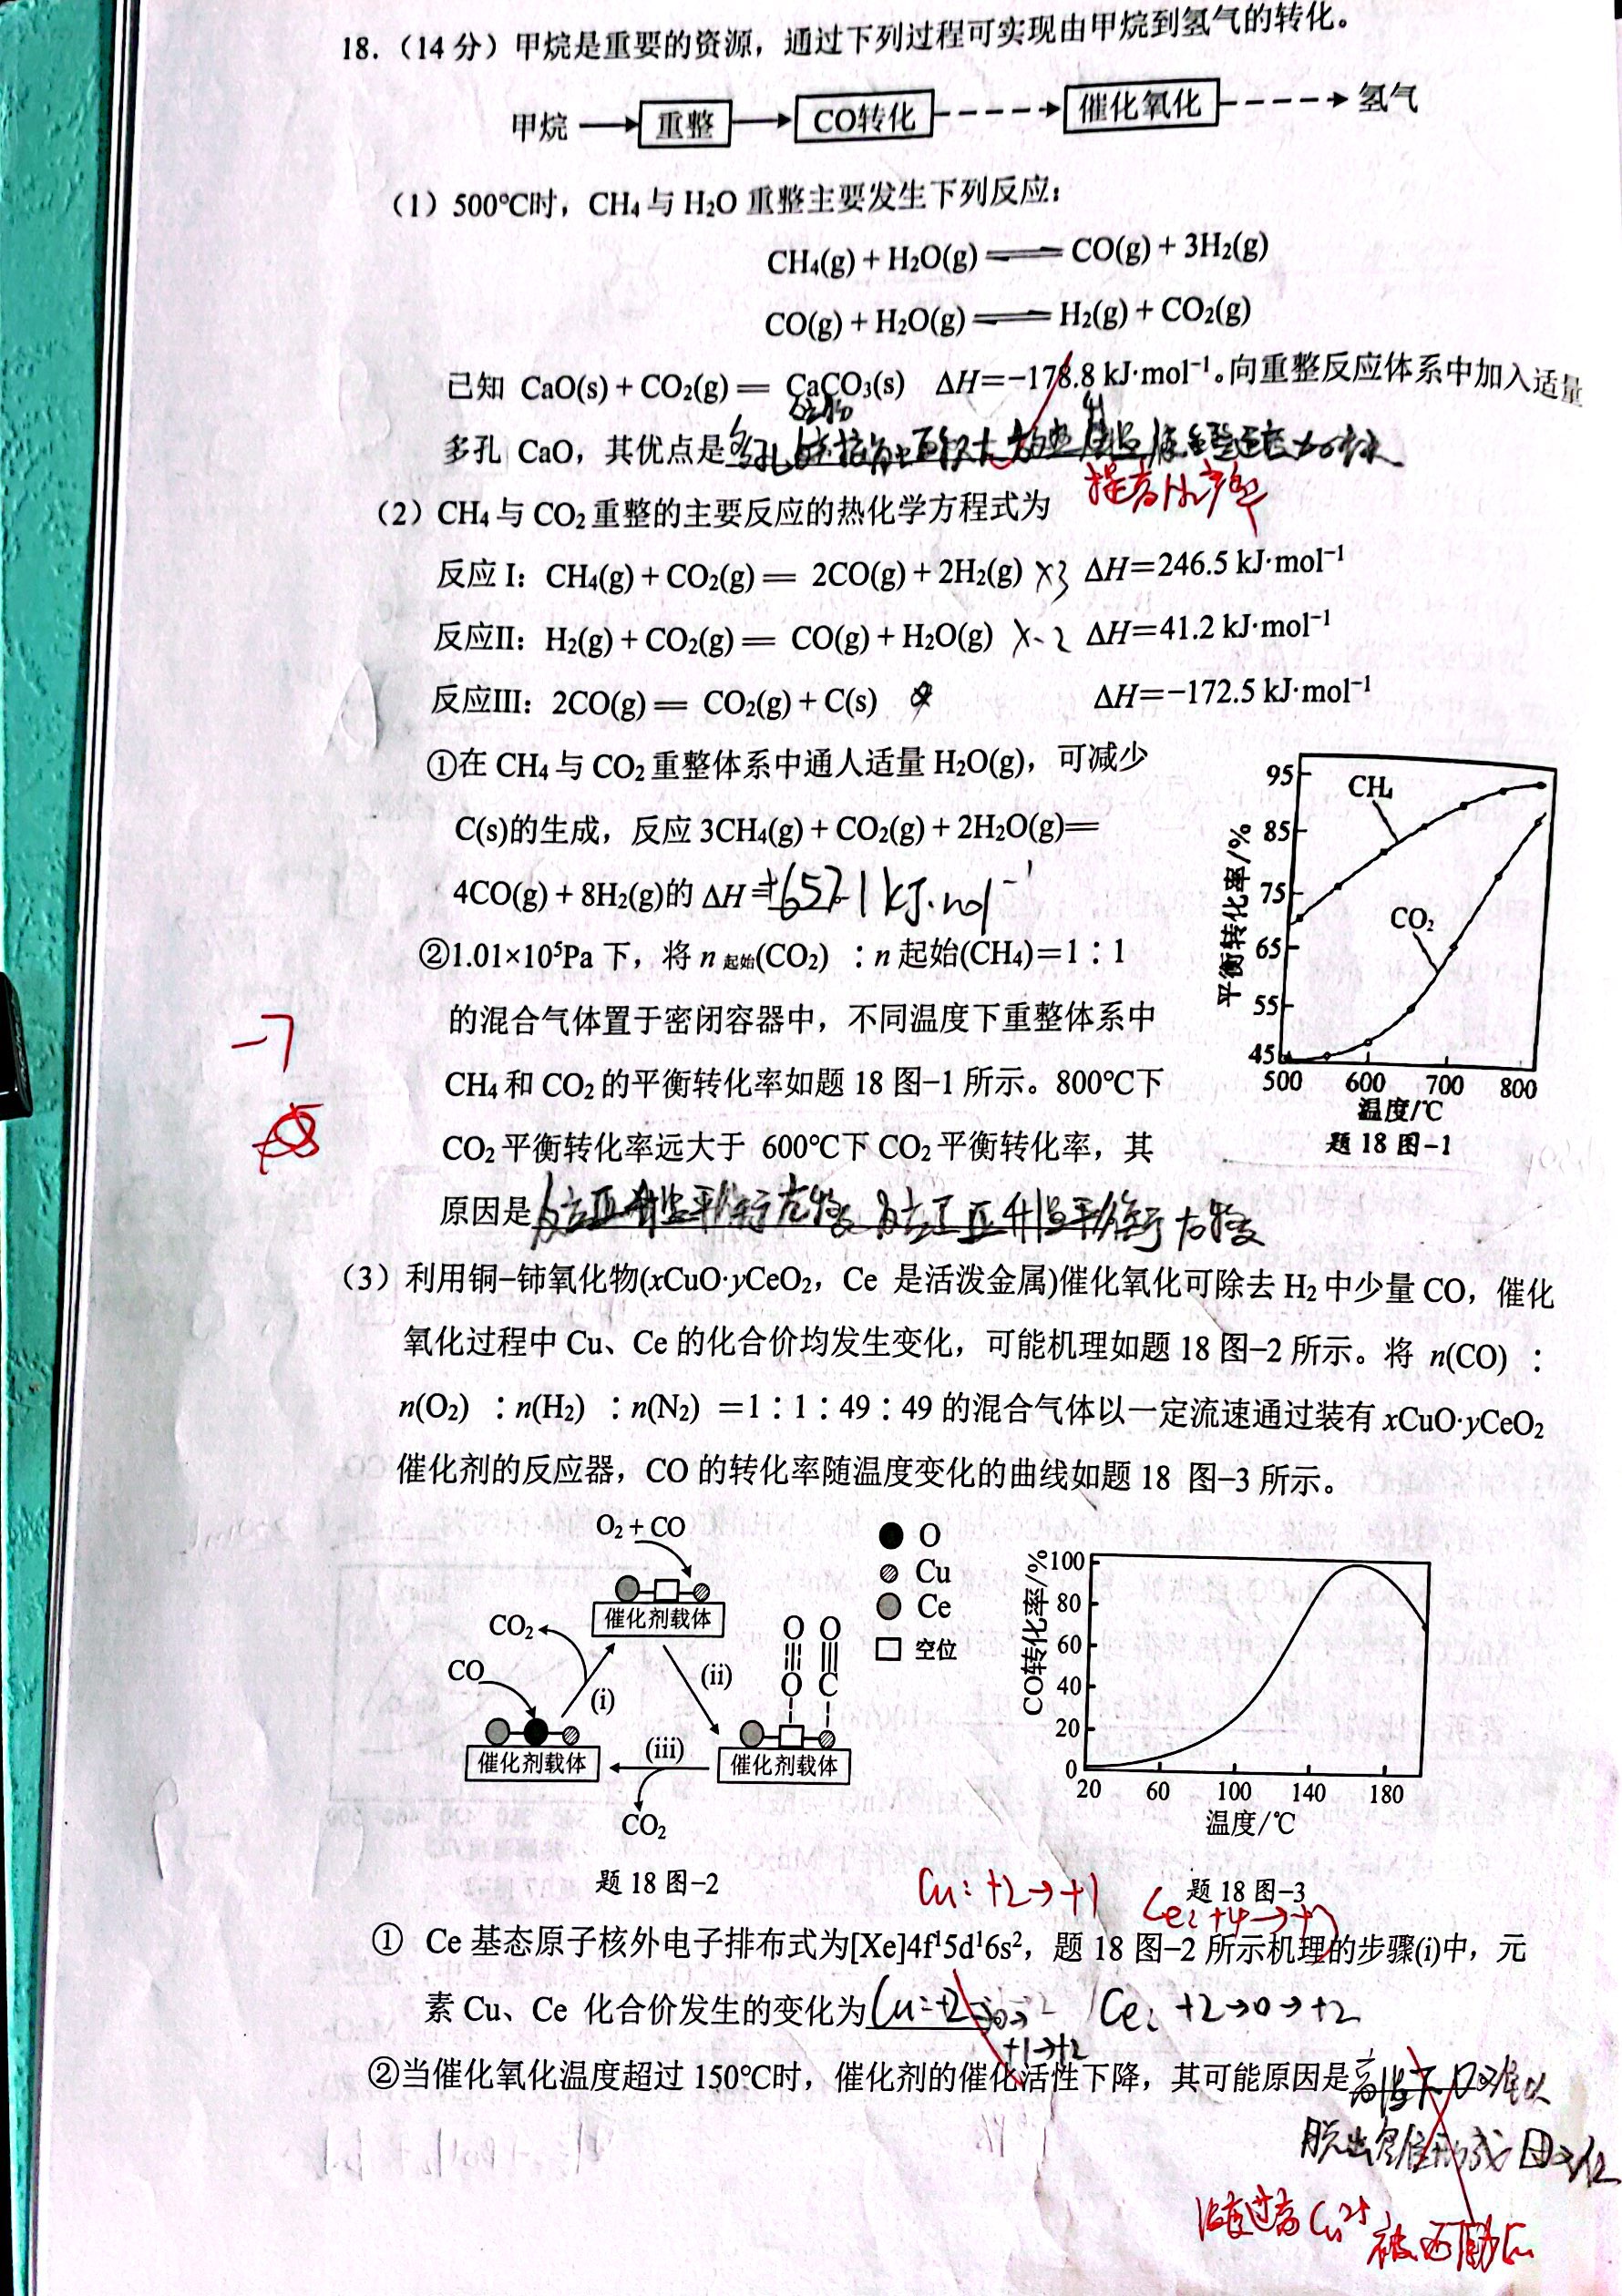 18.（14 分）甲烷是重要的资源，通过下列过程可实现由甲烷到氢气的转化。
甲烷 重整 CO转化 催化氧化 氢气
（1）500℃时，CH₄与 H₂O 重整主要发生下列反应：
CH₄(g) + H₂O(g) ⇌ CO(g) + 3H₂(g)
CO(g) + H₂O(g) ⇌ H₂(g) + CO₂(g)
已知 CaO(s) + CO₂(g) = CaCO₃(s) ΔH=−178.8 kJ·mol⁻¹。向重整反应体系中加入适量
多孔 CaO，其优点是多孔
提高H₂产率
（2）CH₄与 CO₂重整的主要反应的热化学方程式为
反应 I：CH₄(g) + CO₂(g) = 2CO(g) + 2H₂(g) ×3 ΔH=246.5 kJ·mol⁻¹
反应II：H₂(g) + CO₂(g) = CO(g) + H₂O(g) ×-2 ΔH=41.2 kJ·mol⁻¹
反应III：2CO(g) = CO₂(g) + C(s) ΔH=−172.5 kJ·mol⁻¹
①在 CH₄与 CO₂重整体系中通人适量 H₂O(g)，可减少
C(s)的生成，反应 3CH₄(g) + CO₂(g) + 2H₂O(g)=
4CO(g) + 8H₂(g)的 ΔH=+657.1 kJ·mol⁻¹
②1.01×10⁵Pa 下，将 n 起始(CO₂) ：n 起始(CH₄)=1：1
的混合气体置于密闭容器中，不同温度下重整体系中
CH₄和 CO₂的平衡转化率如题 18 图−1 所示。800℃下
CO₂平衡转化率远大于 600℃下 CO₂平衡转化率，其
原因是
平衡转化率/%
95
85
75
65
55
45
CH₄
CO₂
500 600 700 800
温度/℃
题 18 图−1
−7
（3）利用铜−铈氧化物(xCuO·yCeO₂，Ce 是活泼金属)催化氧化可除去 H₂中少量 CO，催化
氧化过程中 Cu、Ce 的化合价均发生变化，可能机理如题 18 图−2 所示。将 n(CO) ：
n(O₂) ：n(H₂) ：n(N₂) =1：1：49：49 的混合气体以一定流速通过装有 xCuO·yCeO₂
催化剂的反应器，CO 的转化率随温度变化的曲线如题 18 图−3 所示。
O₂ + CO
催化剂载体
CO₂
CO
(i)
(ii)
O O
O C
催化剂载体
(iii)
催化剂载体
CO₂
O
Cu
Ce
空位
题 18 图−2
CO转化率/%
100
80
60
40
20
0
20 60 100 140 180
温度/℃
题 18 图−3
Cu：+2→+1
① Ce 基态原子核外电子排布式为[Xe]4f¹5d¹6s²，题 18 图−2 所示机理的步骤(i)中，元
素 Cu、Ce 化合价发生的变化为 Ce：+2→0→+2
+1→+2
②当催化氧化温度超过 150℃时，催化剂的催化活性下降，其可能原因是
温度过高 Cu²⁺